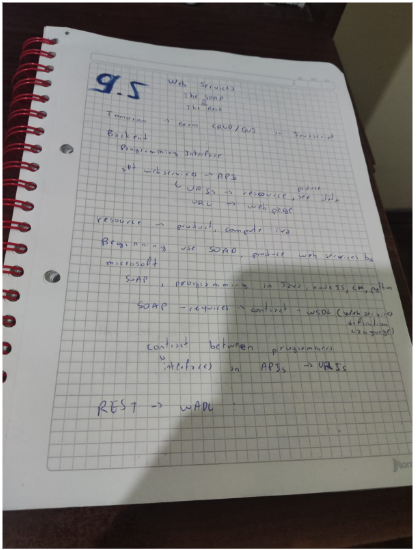 9.5
Web Services
The SOAP
&
The Rest
Tomorrow → Exam
Backend
Programming Interface
web services → API
↳ URIs → resource, see data
URL → web page
resource → product, compute
Beginning use SOAP, produce web services by
microsoft
SOAP, programming in Java, nodeJS, C#, python
SOAP → requires → contract → WSDL (web service
definition
language)
contract between programmers
interfaces in APIs → URIs
REST → WADL